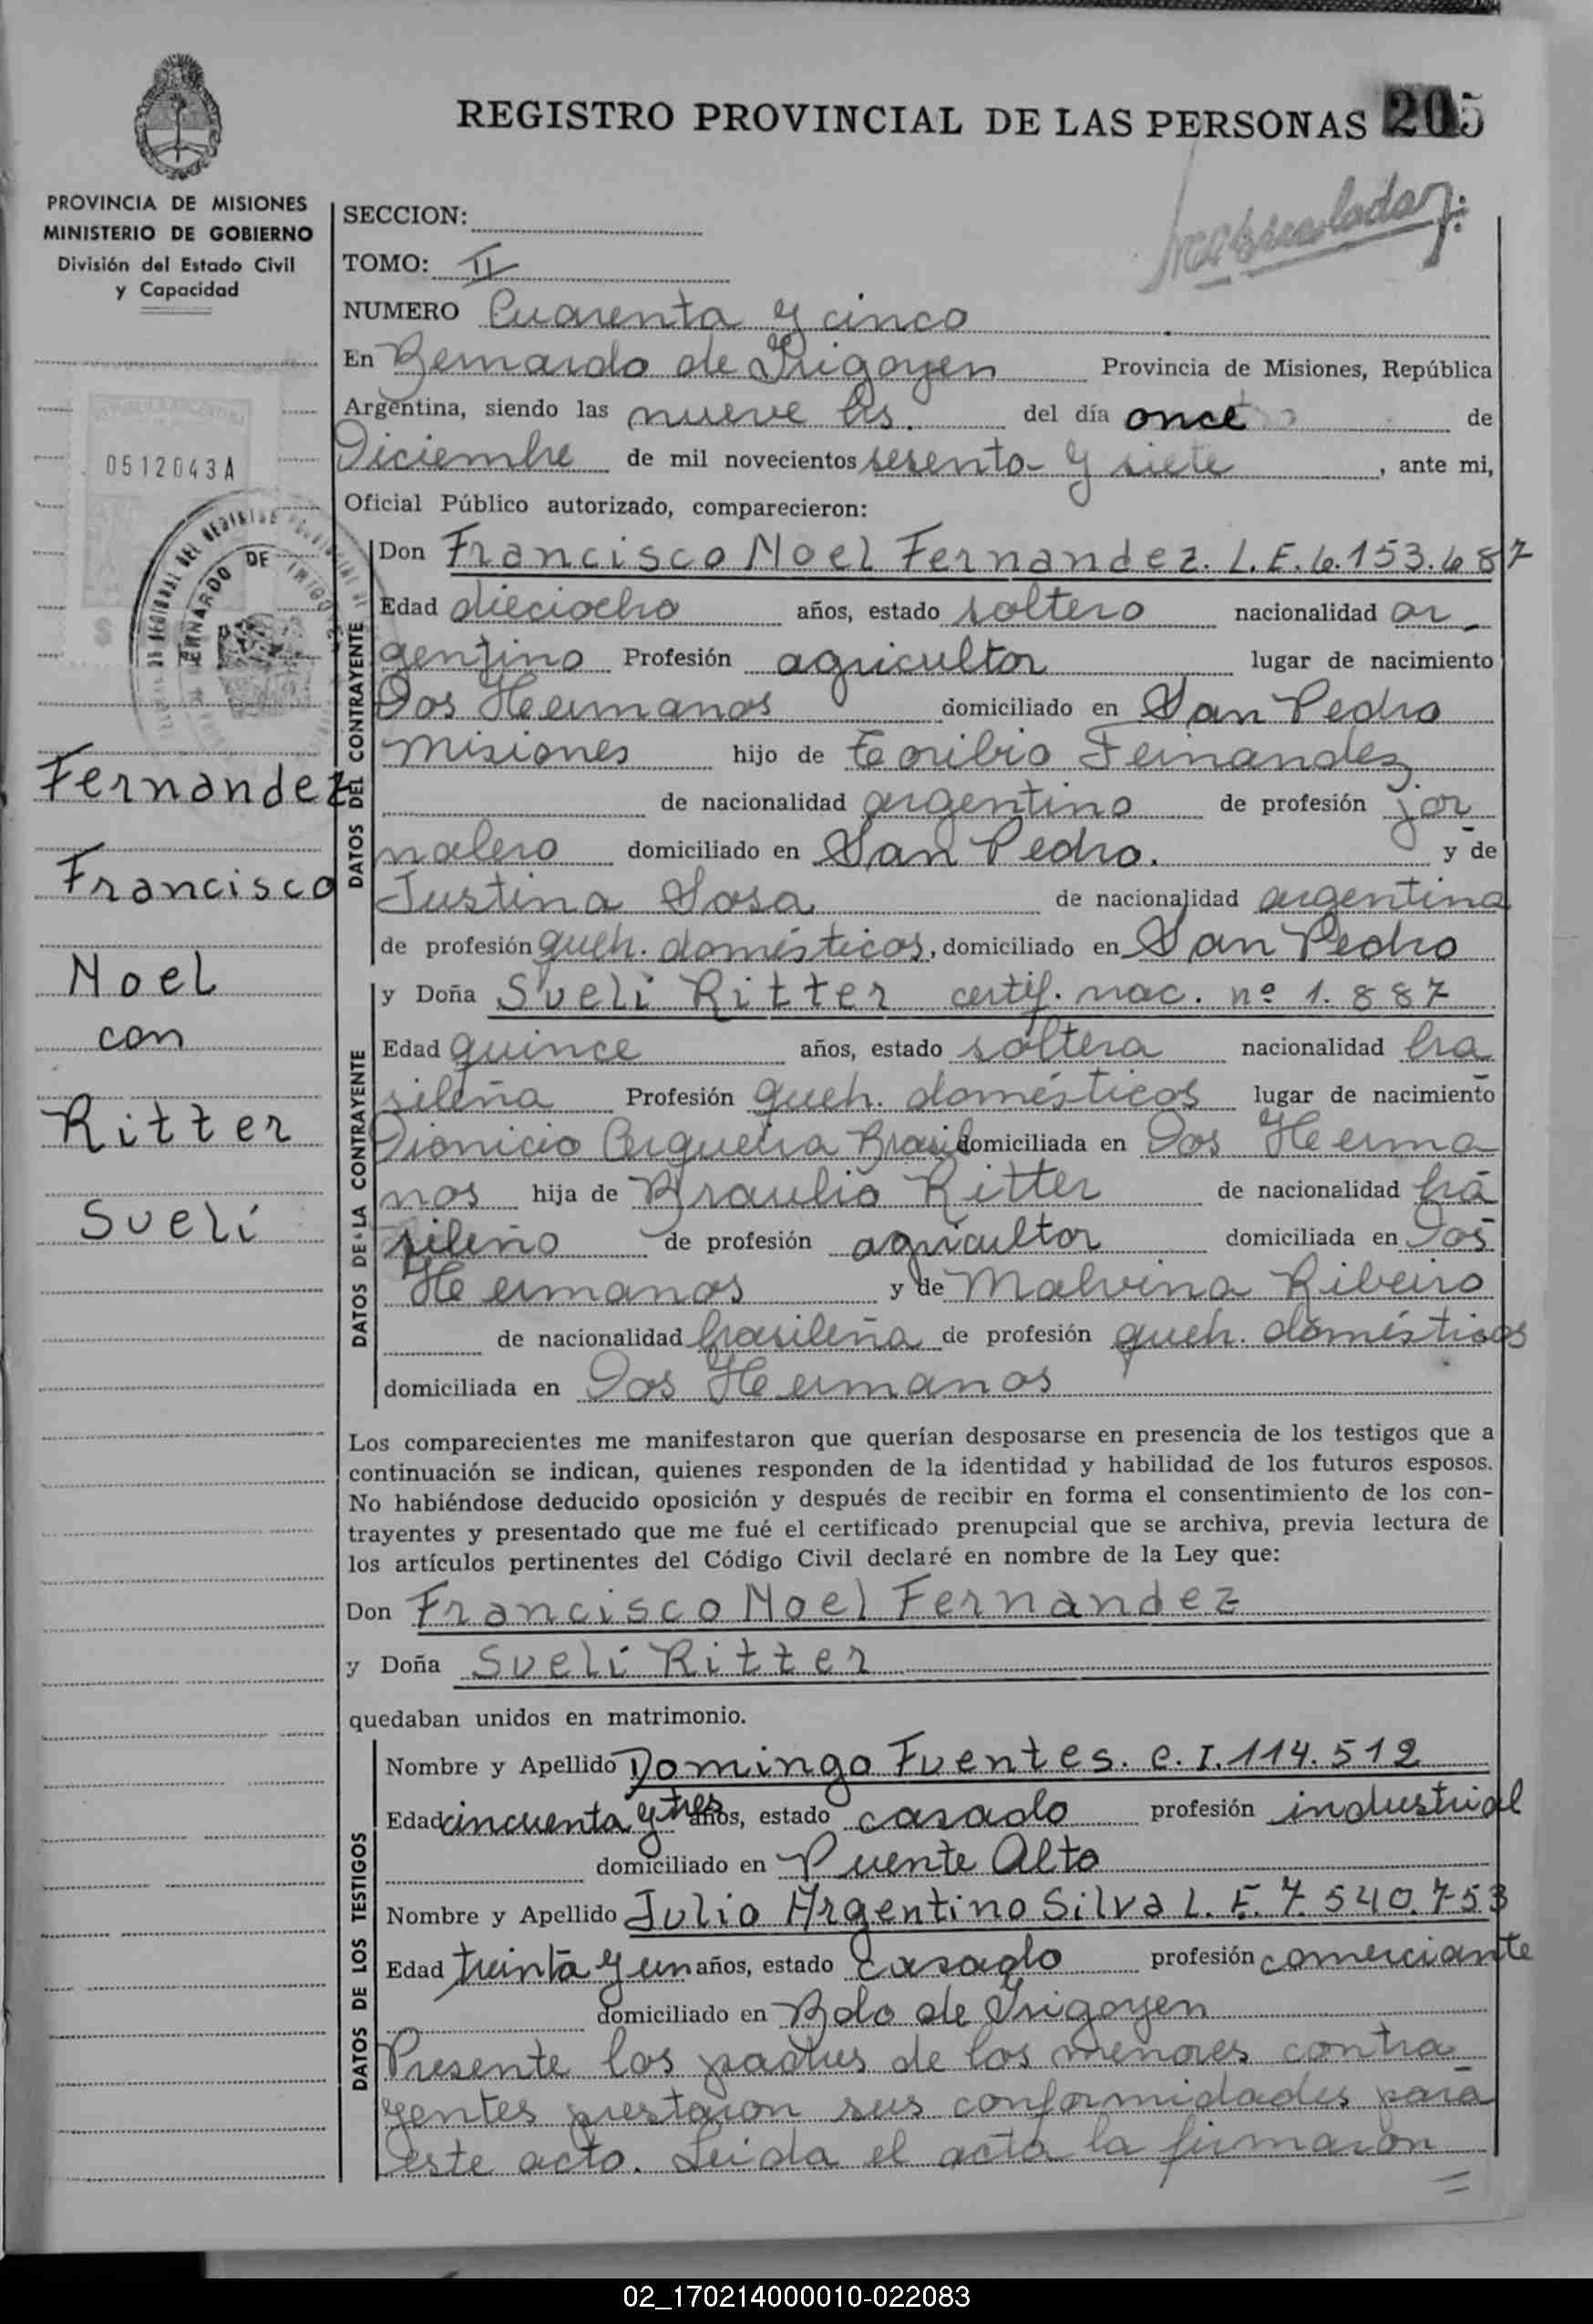 REGISTRO PROVINCIAL DE LAS PERSONAS 205
PROVINCIA DE MISIONES
MINISTERIO DE GOBIERNO
División del Estado Civil
y Capacidad
0512043A
Fernandez
Francisco
Noel
con
Ritter
Sueli
SECCION:
TOMO: II
NUMERO Cuarenta y cinco
En Bernardo de Irigoyen Provincia de Misiones, República
Argentina, siendo las nueve hs. del día once de
Diciembre de mil novecientos sesenta y siete, ante mi,
Oficial Público autorizado, comparecieron:
DATOS DEL CONTRAYENTE
Don Francisco Noel Fernandez. L.E. 6.153.687
Edad dieciocho años, estado soltero nacionalidad ar-
gentino Profesión agricultor lugar de nacimiento
Dos Hermanos domiciliado en San Pedro
Misiones hijo de Toribio Fernandez
de nacionalidad argentino de profesión jor-
nalero domiciliado en San Pedro. y de
Justina Sosa de nacionalidad argentina
de profesión queh. domésticos, domiciliado en San Pedro
DATOS DE LA CONTRAYENTE
y Doña Sueli Ritter certif. nac. nº 1.887
Edad quince años, estado soltera nacionalidad bra-
sileña Profesión queh. domésticos lugar de nacimiento
Dionicio Cerqueira Brasil domiciliada en Dos Herma
nos hija de Braulio Ritter de nacionalidad bra
sileño de profesión agricultor domiciliada en Dos
Hermanos y de Malvina Ribeiro
de nacionalidad brasileña de profesión queh. domésticos
domiciliada en Dos Hermanos
Los comparecientes me manifestaron que querían desposarse en presencia de los testigos que a
continuación se indican, quienes responden de la identidad y habilidad de los futuros esposos.
No habiéndose deducido oposición y después de recibir en forma el consentimiento de los con-
trayentes y presentado que me fué el certificado prenupcial que se archiva, previa lectura de
los artículos pertinentes del Código Civil declaré en nombre de la Ley que:
Don Francisco Noel Fernandez
y Doña Sueli Ritter
quedaban unidos en matrimonio.
DATOS DE LOS TESTIGOS
Nombre y Apellido Domingo Fuentes. C.I. 114.512
Edad cincuenta y tres años, estado casado profesión industrial
domiciliado en Puente Alto
Nombre y Apellido Julio Argentino Silva L.E. 7.540.753
Edad treinta y un años, estado casado profesión comerciante
domiciliado en Bdo de Irigoyen
Presente los padres de los menores contra
yentes prestaron sus conformidades para
este acto. Leida el acta la firmaron
02_170214000010-022083